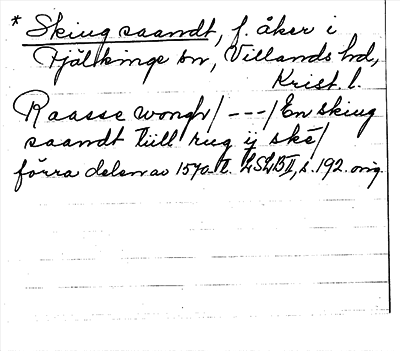 * Skiug saandt, f. åker i
Fjälkinge sn, Villands hd,
Krist. l.
Raasse wongh/---/En skiug
saandt tiill rug ij ské/
förra delen av 1570-t. LSLB II, s. 192. orig.